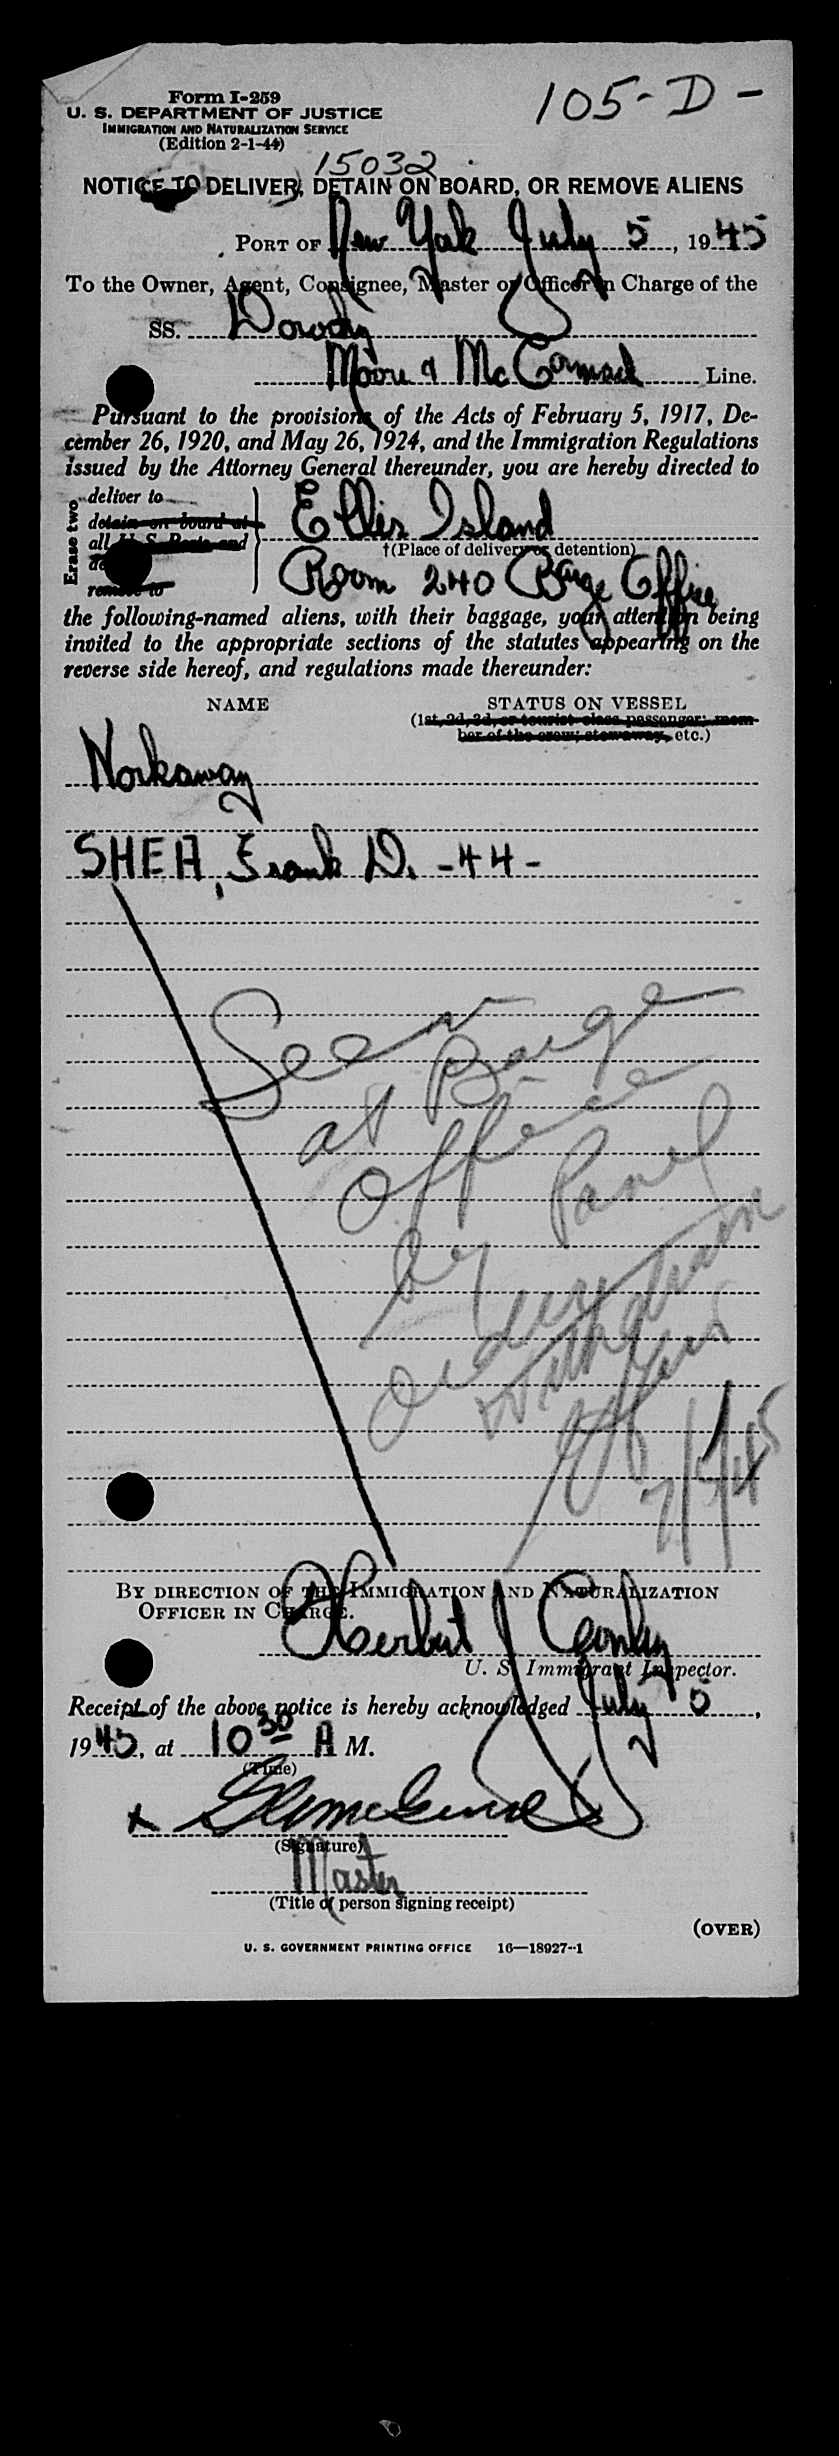 105-D-
Form I-259
U. S. DEPARTMENT OF JUSTICE
IMMIGRATION AND NATURALIZATION SERVICE
(Edition 2-1-44)
15032
NOTICE TO DELIVER, DETAIN ON BOARD, OR REMOVE ALIENS
PORT OF New York July 5, 1945
To the Owner, Agent, Consignee, Master or Officer in Charge of the
SS. Dowdy
Moore & McCormack Line.
Pursuant to the provisions of the Acts of February 5, 1917, De-
cember 26, 1920, and May 26, 1924, and the Immigration Regulations
issued by the Attorney General thereunder, you are hereby directed to
Erase two
deliver to
detain on board at
all U. S. Ports and
remove to
Ellis Island
†(Place of delivery or detention)
Room 240 Barge Office
the following-named aliens, with their baggage, your attention being
invited to the appropriate sections of the statutes appearing on the
reverse side hereof, and regulations made thereunder:
NAME STATUS ON VESSEL
(1st, 2d, 3d, or tourist class passenger; mem-
ber of the crew; stowaway, etc.)
Workaway
SHEA, Frank D. -44-
Seen
at Barge
Office
by Panel
order
Withdrawn
7/5/45
BY DIRECTION OF THE IMMIGRATION AND NATURALIZATION
OFFICER IN CHARGE.
Herbert J Conley
U. S. Immigrant Inspector.
Receipt of the above notice is hereby acknowledged July 5,
1945, at 10 30 A M.
(Time)
x
(Signature)
Master
(Title of person signing receipt)
(OVER)
U. S. GOVERNMENT PRINTING OFFICE 16—18927-1